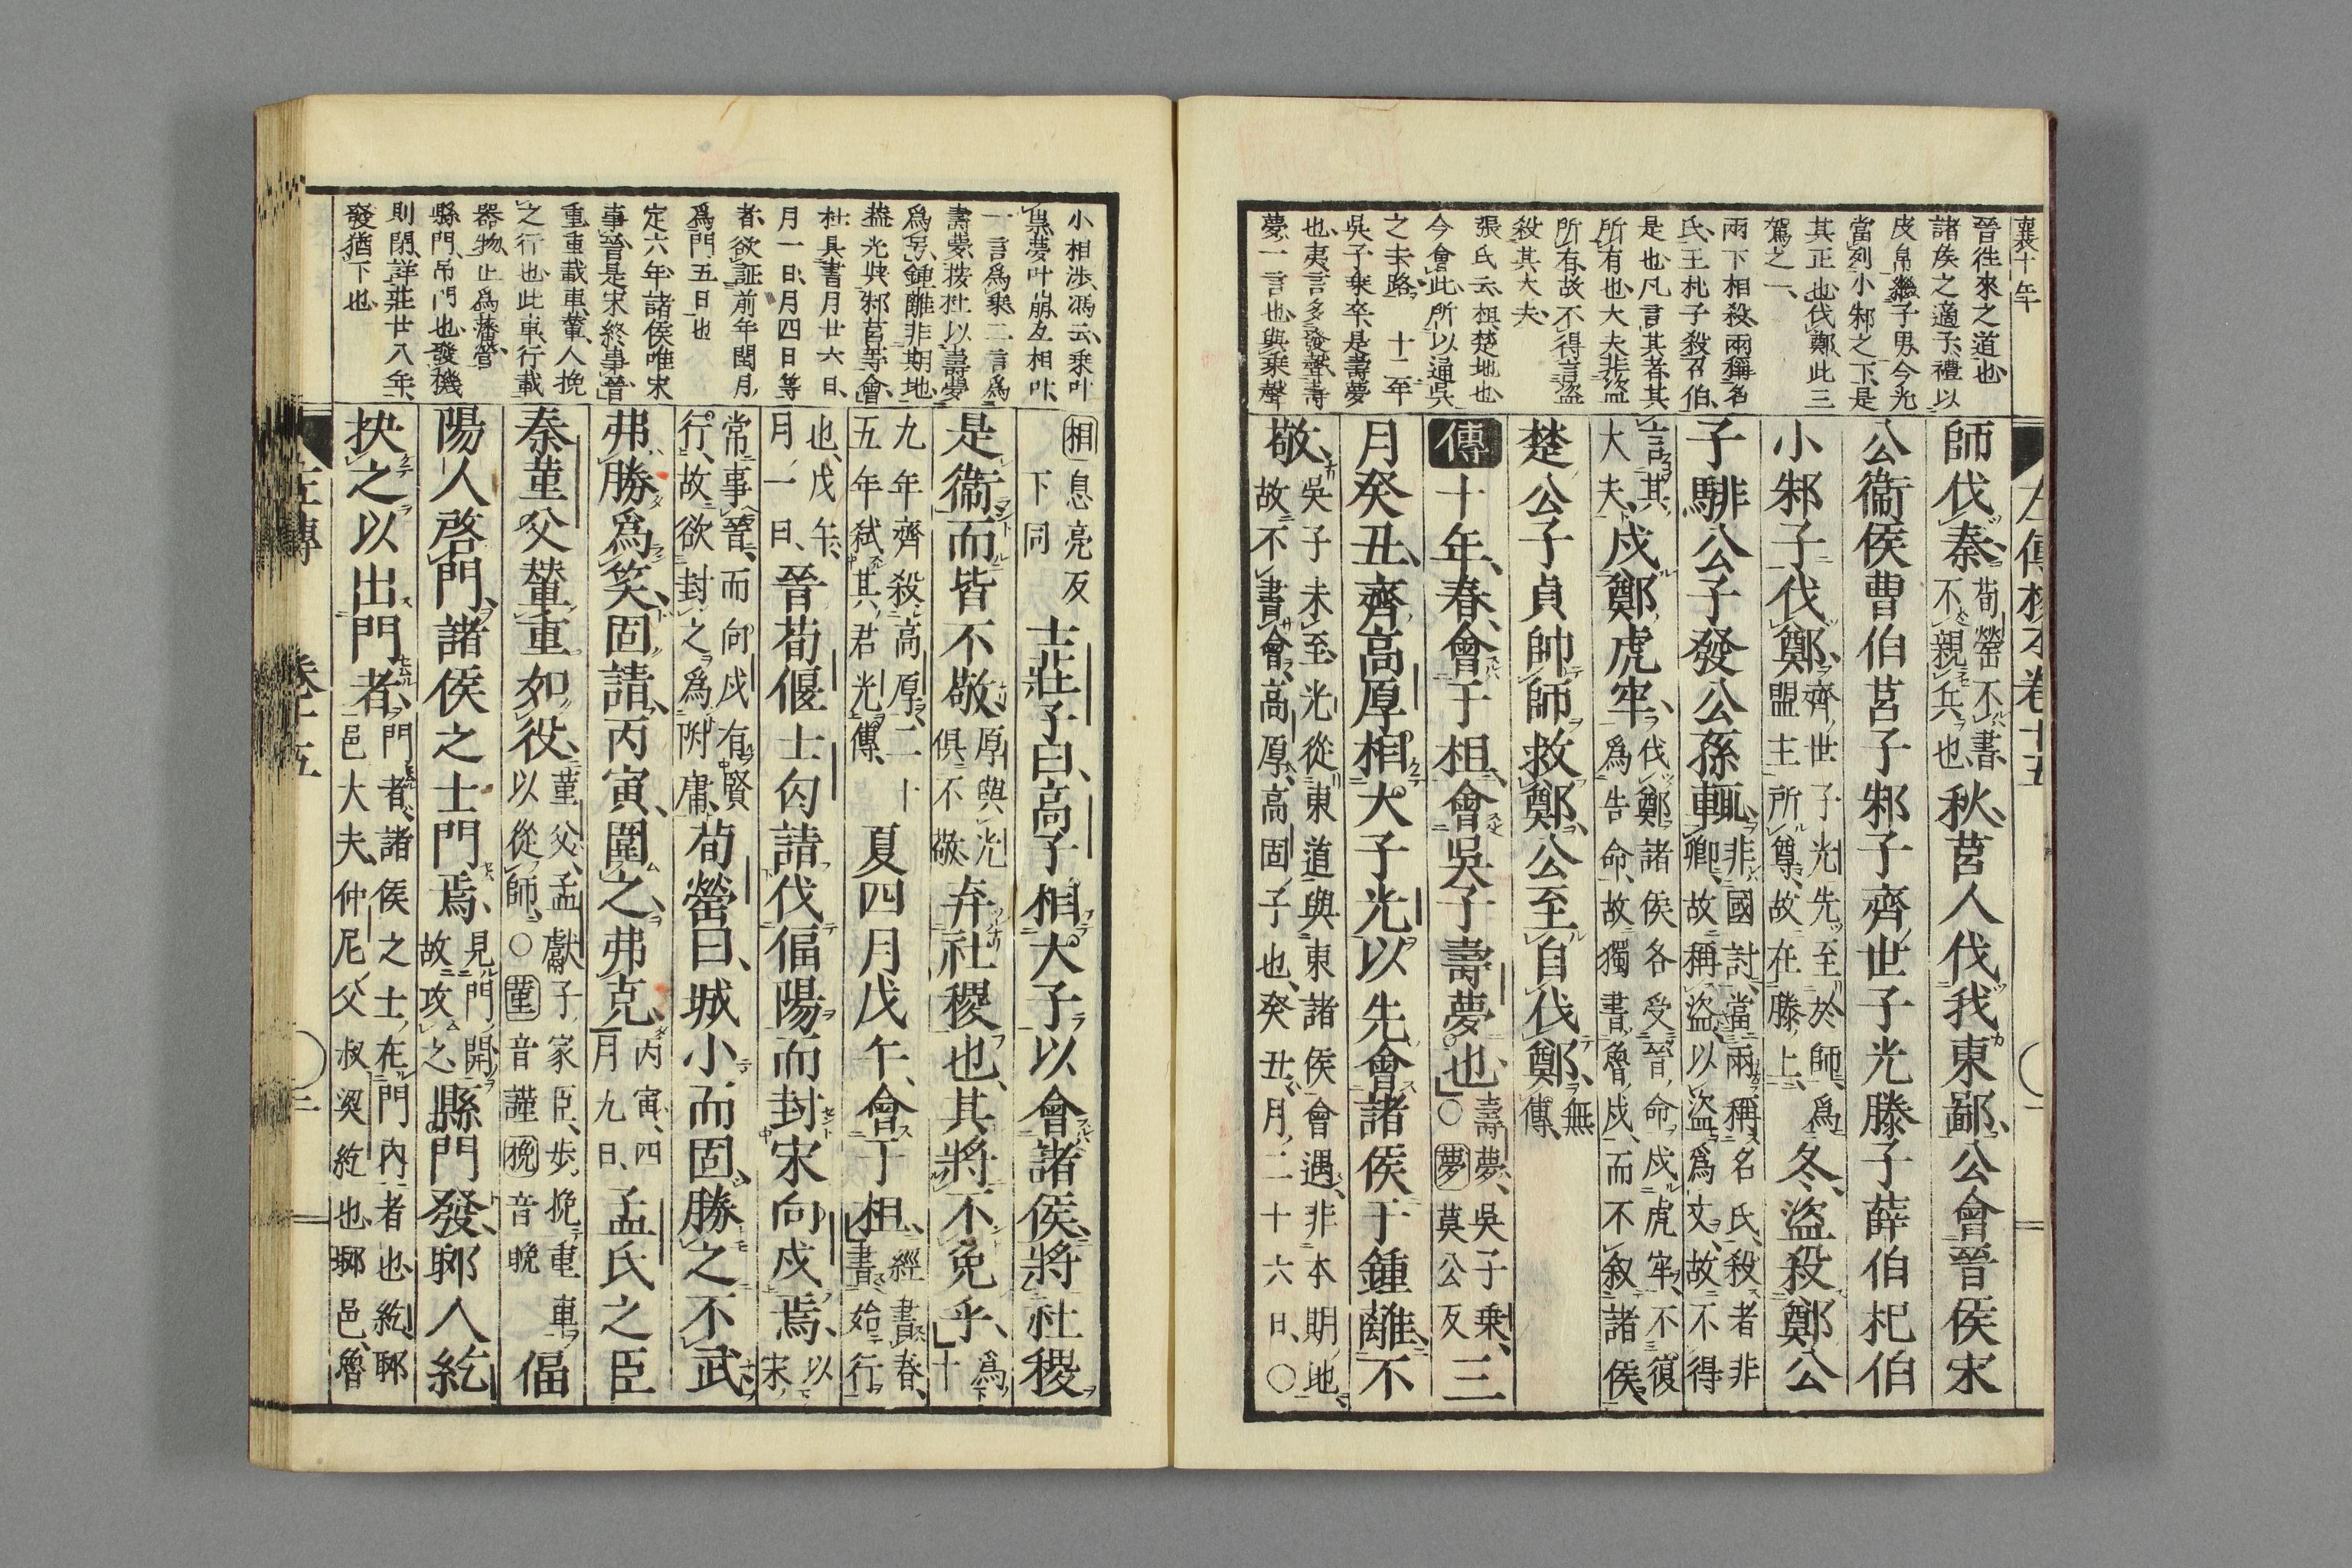 襄十年
晉徃來之道也
諸矦之適子禮以
皮帛繼子男今光
當列小邾之下是
其正也伐鄭此三
駕之一
兩下相殺兩稱名
氏王札子殺召伯
是也凡言其者其
所有也大夫非盜
所有故不得言盜
殺其大夫
張氏云柤楚地也
今會此所以通吳
之未路 十二年
吳子乗卒是壽夢
也夷言多發聲壽
夢一言也與乗聲
師伐秦荀罃不書不親兵也秋莒人伐我東鄙公會晉侯宋
公衞侯曹伯莒子邾子齊世子光滕子薛伯杞伯
小邾子伐鄭齊世子光先至於師爲盟主所尊故在滕上冬盜殺鄭公
子騑公子發公孫輒非國討當兩稱名氏殺者非卿故稱盜以盜爲文故不得
言其大夫戍鄭虎牢伐鄭諸侯各受晉命戍虎牢不復爲告命故獨書魯戍而不叙諸侯
楚公子貞帥師救鄭公至自伐鄭無傳
傳十年春會于柤會吳子壽夢也壽夢吳子乗○夢莫公反三
月癸丑齊高厚相大子光以先會諸侯于鍾離不
敬吳子未至光從東道與東諸侯會遇非本期地故不書會高厚高固子也癸丑月二十六日○
小相渉馮云乗叶
㒷夢叶崩互相叶
一言爲乗二言爲
壽夢按杜以壽夢
爲号鍾離非期地
蓋光與邾莒等會
杜具書月廿六日
月一日月四日等
者欲証前年閏月
爲門五日也
定六年諸侯唯宋
事晉是宋終事晉
重重載車輦人挽
之行也此車行載
器物止爲藩營
縣門吊門也發機
則閉詳莊廿八年
發猶下也
相息亮反下同士莊子曰高子相大子以會諸侯將社稷
是衞而皆不敬厚與光俱不敬弃社稷也其將不免乎爲十
九年齊殺高厚二十五年弑其君光傳夏四月戊午會于柤經書春書始行
也戊午月一日晉荀偃士匄請伐偪陽而封宋向戍焉以宋
常事晉而向戍有賢行故欲封之爲附庸荀罃曰城小而固勝之不武
弗勝爲笑固請丙寅圍之弗克丙寅四月九日孟氏之臣
秦菫父輦重如役菫父孟獻子家臣步挽重車以從師○菫音謹挽音晚偪
陽人啓門諸侯之士門焉見門開故攻之縣門發郰人紇
抉之以出門者門者諸侯之士在門內者也紇郰邑大夫仲尼父叔梁紇也郰邑魯